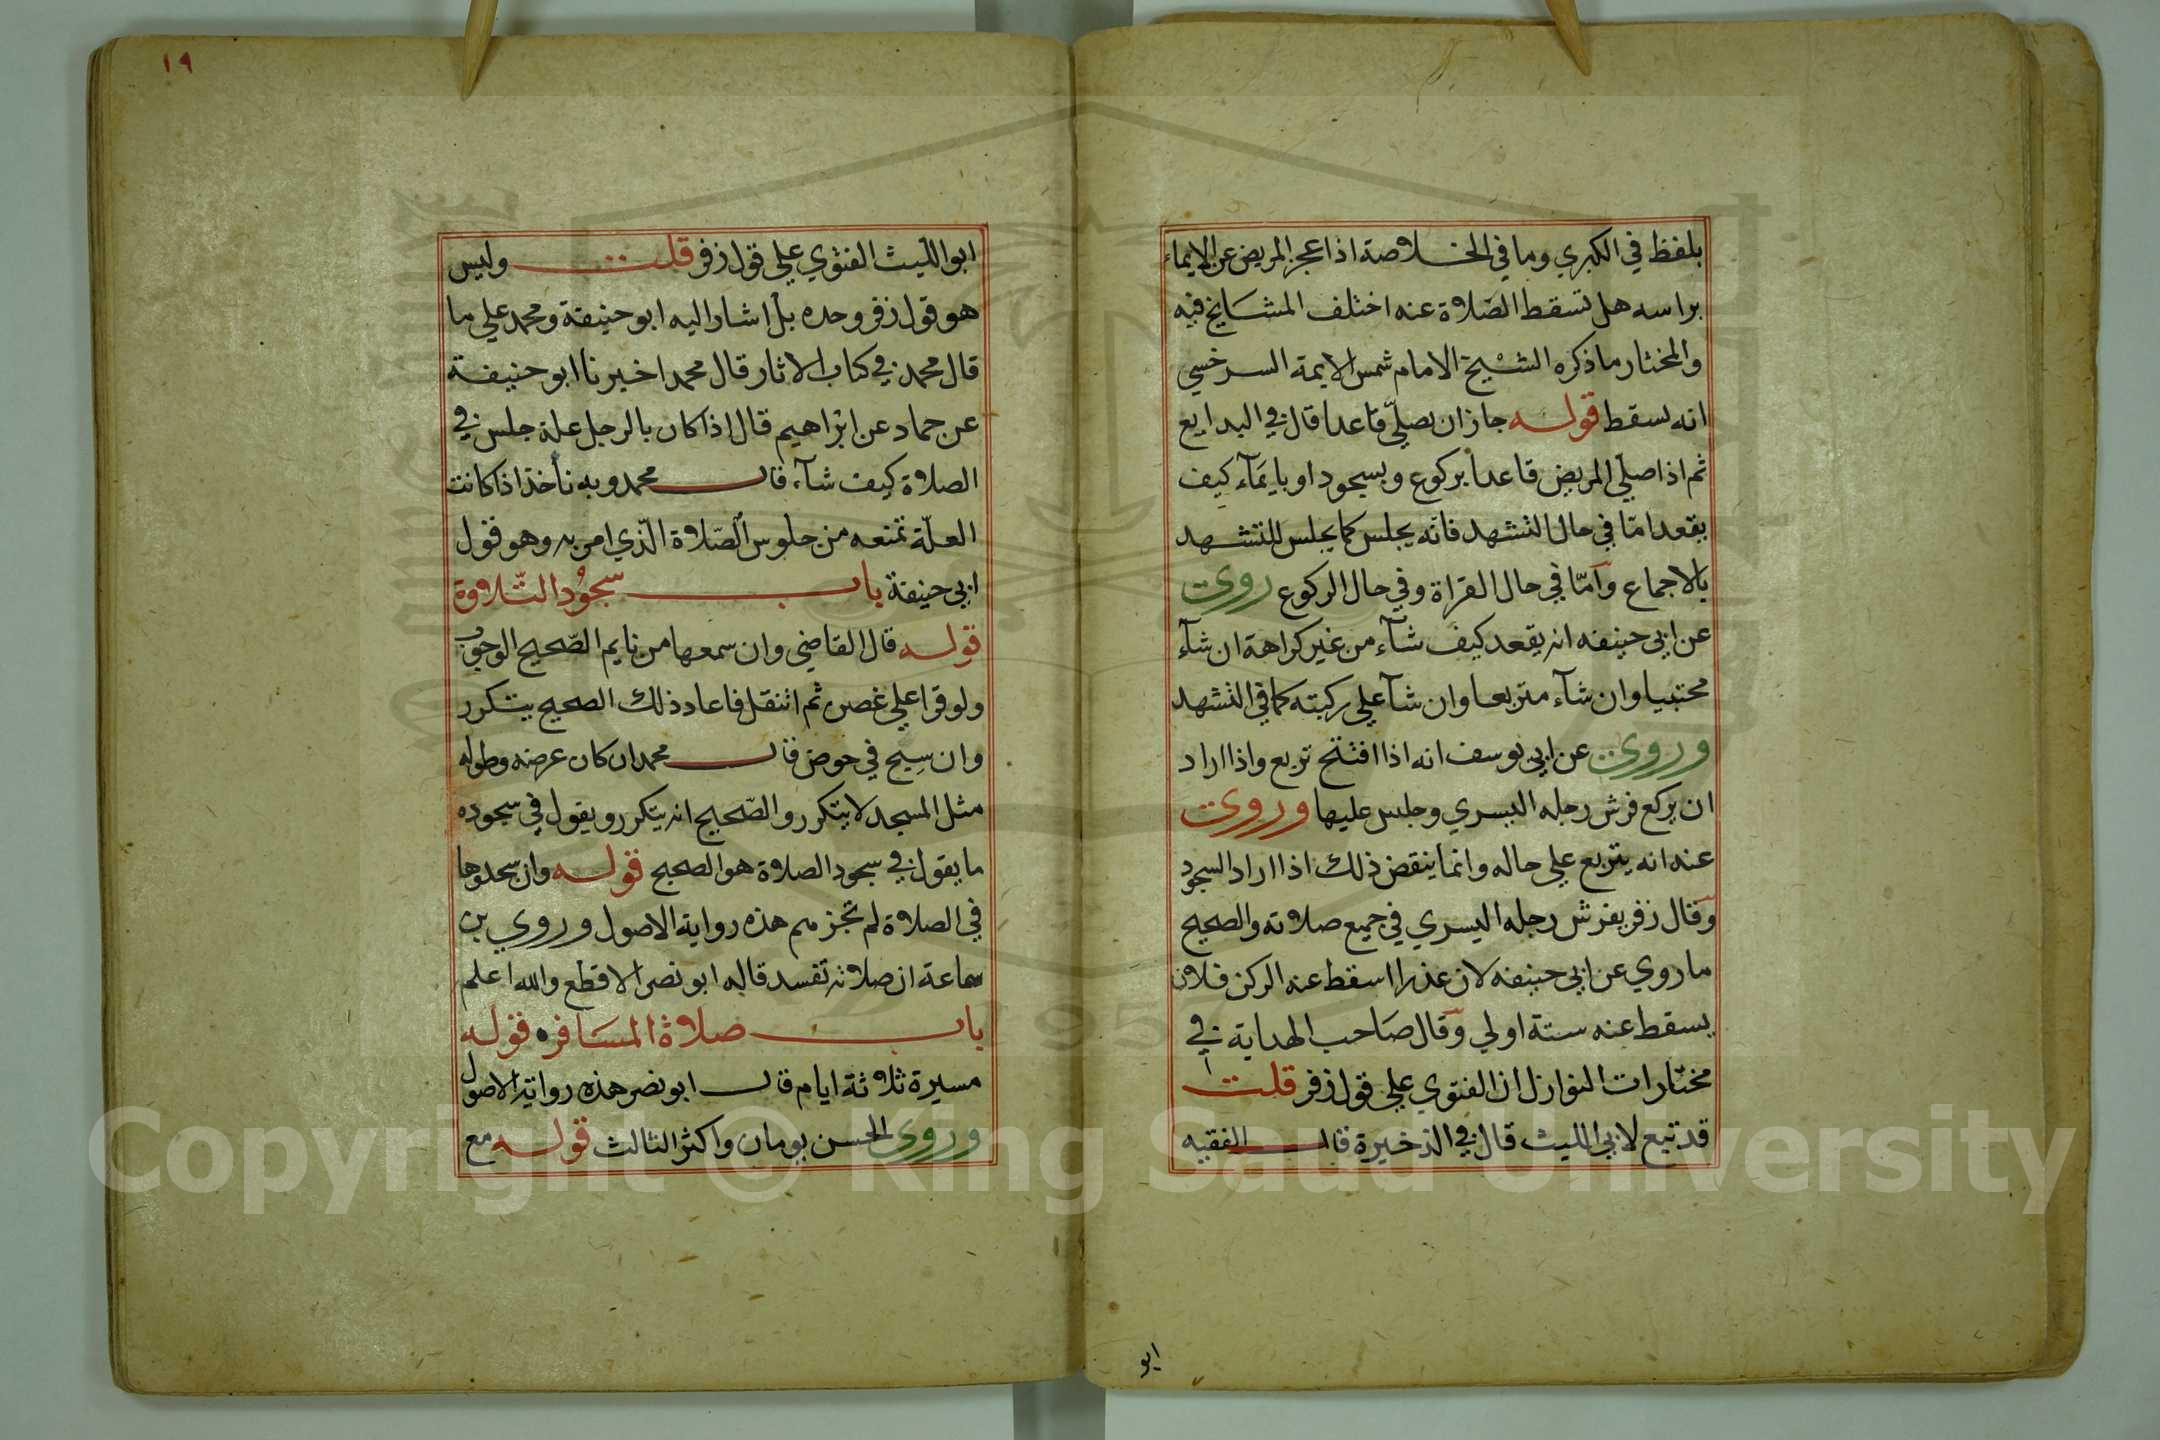 بلفظ في الكبري وما في الخلاصة اذا عجز المريض عن الايماء
براسه هل تسقط الصلاة عنه اختلف المشايخ فيه
والمختار ما ذكره الشيخ الامام شمس الايمة السرخسي
انه تسقط قوله جاز ان يصلي قاعدا قال في البدايع
ثم اذا صلي المريض قاعدا بركوع وبسجود او بايمآء كيف
يقعد امّا في حال التشهد فانه يجلس كما يجلس للتشهد
بالاجماع وآمّا في حال القراة وفي حال الركوع روي
عن ابي حنيفه انه يقعد كيف شآء من غير كراهة ان شآء
محتبيا وان شآء متربعا وان شآ علي ركبته كما في التشهد
وروي عن ابي يوسف انه اذا افتتح تربع واذا اراد
ان يركع فرش رجله اليسري وجلس عليها وروي
عنه انه يتربع علي حاله وانما ينقض ذلك اذا اراد السجود
وقال زفر يفرش رجله اليسري في جميع صلاته والصحيح
ما روي عن ابي حنيفه لان عذرا اسقط عنه الركن فلان
يسقط عنه سنة اولي وقال صاحب الهداية في
مختارات النوازل ان الفتوي علي قول زفر قلت
قد تبع لابي الليث قال في الذخيرة قال الفقيه
ابو
١٩
ابو الليث الفتوي علي قول زفر قلت وليس
هو قول زفر وحده بل اشار اليه ابو حنيفة ومحمد علي ما
قال محمد في كتاب الاثار قال محمد اخبرنا ابو حنيفة
عن حماد عن ابراهيم قال اذا كان بالرجل علة جلس في
الصلاة كيف شآء قال محمد وبه نأخذ اذا كانت
العلّة تمنعه من جلوس الصّلاة الّذي امر به وهو قول
ابي حنيفة باب سجود التّلاوة
قوله قال القاضي وان سمعها من نايم الصّحيح الوجوب
ولو قرا علي غصن ثم انتقل فاعاد ذلك الصحيح يتكرر
وان سبح في حوض قال محمد ان كان عرضه وطوله
مثل المسجد لا يتكرر والصّحيح انه يتكرر ويقول في سجوده
ما يقول في سجود الصلاة هو الصحيح قوله وان سجدوها
في الصلاة لم تجزهم هذه رواية الاصول وروي بن
سماعة ان صلاته تفسد قاله ابو نصر الاقطع والله اعلم
باب صلاة المسافر قوله
مسيرة ثلاثة ايام قال ابو نصر هذه رواية الاصول
وروي الحسن يومان واكثر الثالث قوله مع
Copyright © King Saud University